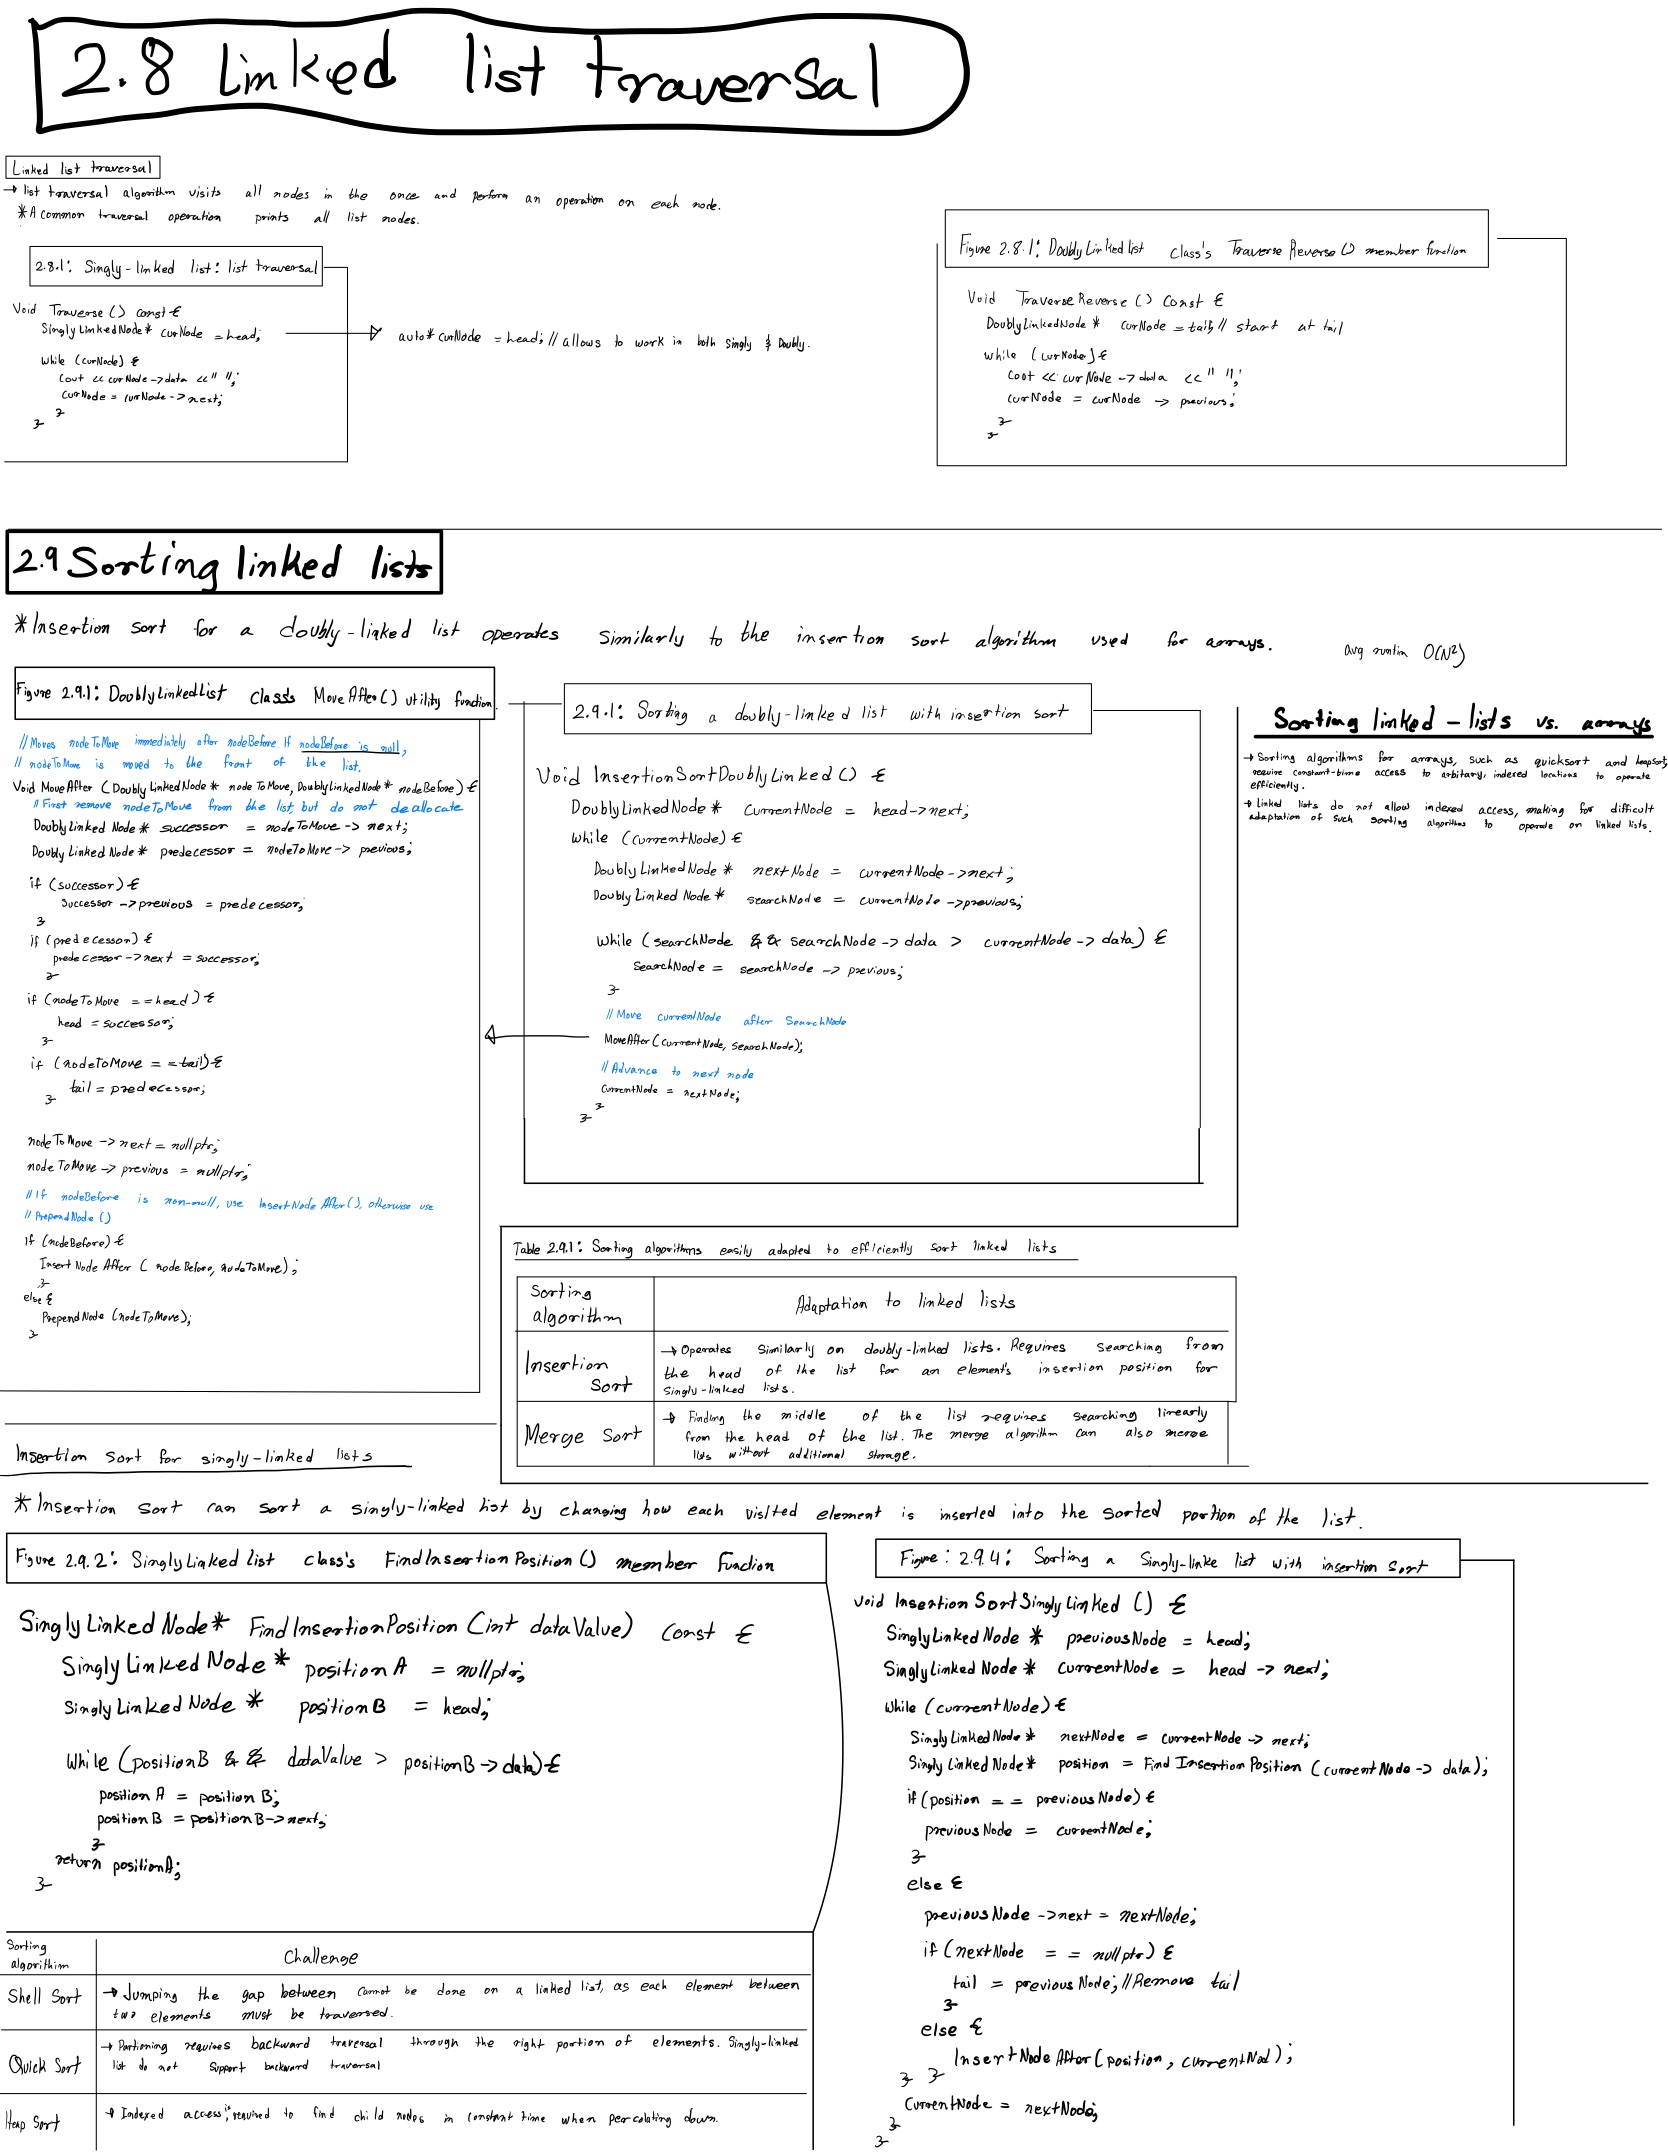 2.8 Linked list traversal
Linked list traversal
→ list traversal algorithm visits all nodes in the once and perform an operation on each node.
*A common traversal operation prints all list nodes.
2.8.1: Singly-linked list: list traversal
Void Traverse() const {
SinglyLinkedNode* curNode = head;
while (curNode) {
cout << curNode->data <<" ";
curNode = curNode->next;
}
}
auto* curNode = head; // allows to work in both singly & Doubly.
Figure 2.8.1: DoublyLinkedlist class's TraverseReverse() member function
Void TraverseReverse() Const {
DoublyLinkedNode* curNode = tail; // start at tail
while (curNode) {
cout << curNode -> data << " ";
curNode = curNode -> previous;
}
}
2.9 Sorting linked lists
*Insertion sort for a doubly-linked list operates similarly to the insertion sort algorithm used for arrays.
avg runtim O(N²)
Figure 2.9.1: DoublyLinkedList class's MoveAfter() utility function
// Moves nodeToMove immediately after nodeBefore If nodeBefore is null,
// nodeToMove is moved to the front of the list.
Void MoveAfter (DoublyLinkedNode* nodeToMove, DoublyLinkedNode* nodeBefore) {
// First remove nodeToMove from the list, but do not deallocate
DoublyLinkedNode* successor = nodeToMove -> next;
DoublyLinkedNode* predecessor = nodeToMove -> previous;
if (successor) {
Successor -> previous = predecessor;
}
if (predecessor) {
predecessor -> next = successor;
}
if (nodeToMove == head) {
head = successor;
}
if (nodeToMove == tail) {
tail = predecessor;
}
nodeToMove -> next = nullptr;
nodeToMove -> previous = nullptr;
// If nodeBefore is non-null, use InsertNodeAfter(), otherwise use
// PrependNode()
If (nodeBefore) {
InsertNodeAfter (nodeBefore, nodeToMove);
}
else {
PrependNode (nodeToMove);
}
2.9.1: Sorting a doubly-linked list with insertion sort
Void InsertionSortDoublyLinked() {
DoublyLinkedNode* CurrentNode = head->next;
while (currentNode) {
DoublyLinkedNode* nextNode = currentNode->next;
DoublyLinkedNode* searchNode = currentNode->previous;
While (searchNode && searchNode -> data > currentNode -> data) {
SearchNode = searchNode -> previous;
}
// Move currentNode after SearchNode
MoveAfter (currentNode, searchNode);
// Advance to next node
CurrentNode = nextNode;
}
}
Sorting linked-lists vs. arrays
→ Sorting algorithms for arrays, such as quicksort and heapsort,
require constant-time access to arbitary, indexed locations to operate
efficiently.
→ Linked lists do not allow indexed access, making for difficult
adaptation of such sorting algorithms to operate on linked lists.
Table 2.9.1: Sorting algorithms easily adapted to efficiently sort linked lists
Sorting algorithm
Adaptation to linked lists
Insertion Sort
→ Operates Similarly on doubly-linked lists. Requires searching from
the head of the list for an element's insertion position for
singly-linked lists.
Merge Sort
→ Finding the middle of the list requires searching linearly
from the head of the list. The merge algorithm can also merge
lists without additional storage.
Insertion Sort for singly-linked lists
*Insertion sort can sort a singly-linked list by changing how each visited element is inserted into the sorted portion of the list.
Figure 2.9.2: SinglyLinked list class's FindInsertionPosition() member function
SinglyLinkedNode* FindInsertionPosition (int dataValue) const {
SinglyLinkedNode* positionA = nullptr;
SinglyLinkedNode* positionB = head;
While (positionB && dataValue > positionB->data) {
positionA = positionB;
positionB = positionB->next;
}
return positionA;
}
Sorting algorithim
Challenge
Shell Sort
→ Jumping the gap between cannot be done on a linked list, as each element between
two elements must be traversed.
Quick Sort
→ Partioning requires backward traversal through the right portion of elements. Singly-linked
list do not support backward traversal
Heap Sort
→ Indexed access is required to find child nodes in constant time when percolating down.
Figure: 2.9.4: Sorting a Singly-linke list with insertion sort
Void InsertionSortSinglyLinked () {
SinglyLinkedNode* previousNode = head;
SinglyLinkedNode* currentNode = head -> next;
While (currentNode) {
SinglyLinkedNode* nextNode = currentNode -> next;
SinglyLinkedNode* position = FindInsertionPosition (currentNode -> data);
if (position == previousNode) {
previousNode = currentNode;
}
else {
previousNode -> next = nextNode;
if (nextNode == nullptr) {
tail = previousNode; // Remove tail
}
else {
InsertNodeAfter (position, currentNod);
} }
CurrentNode = nextNode;
}
}